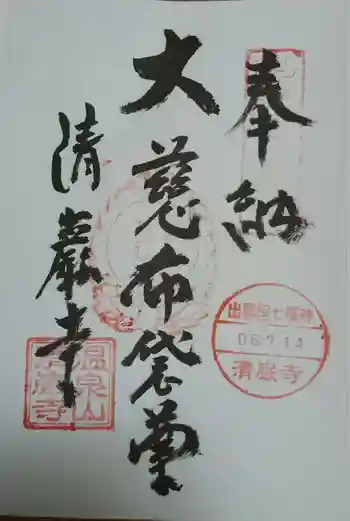 奉納
大慈布袋尊
清巖寺
出雲國七福神
06.7.14
清巌寺
温泉山
清巖寺